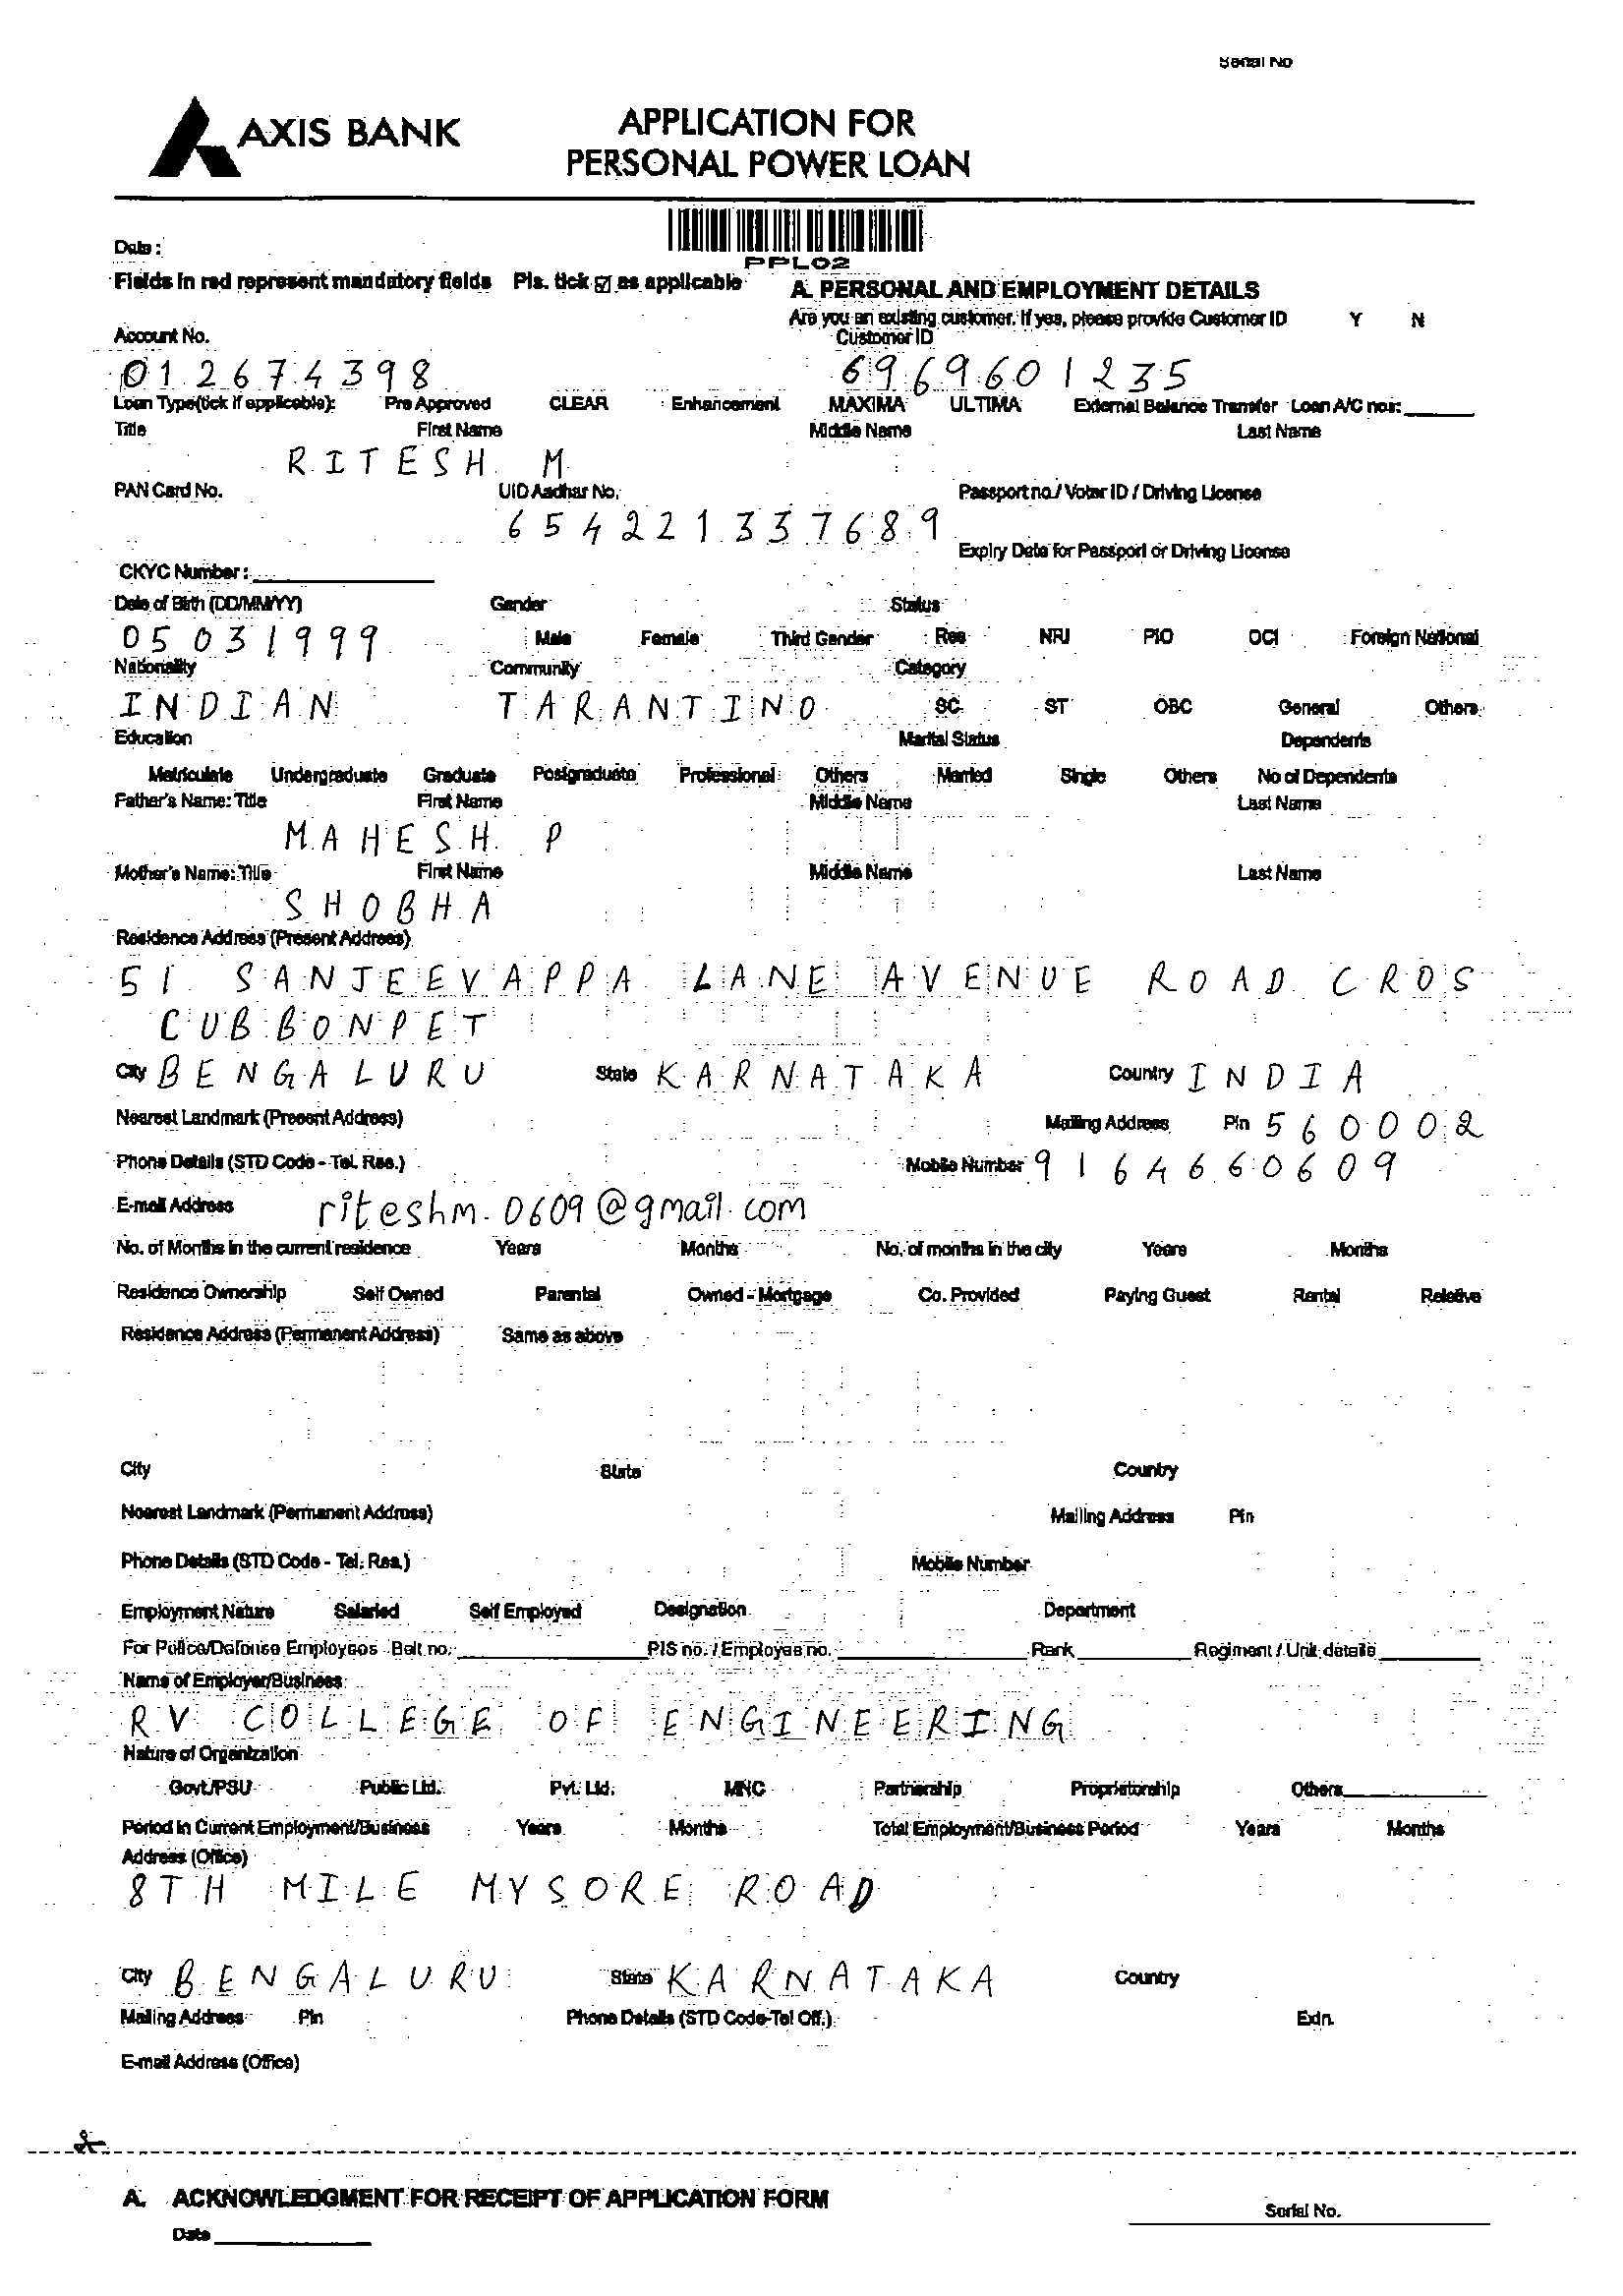 Serial No
AXIS BANK
APPLICATION FOR
PERSONAL POWER LOAN
PPL02
Date :
Fields in red represent mandatory fields Pls. tick ☑ as applicable
A. PERSONAL AND EMPLOYMENT DETAILS
Are you an existing customer. If yes, please provide Customer ID Y N
Account No. Customer ID
012674398 6969601235
Loan Type(tick if applicable): Pre Approved CLEAR Enhancement MAXIMA ULTIMA External Balance Transfer Loan A/C nos:
Title First Name Middle Name Last Name
RITESH M
PAN Card No. UID Aadhar No. Passport no./ Voter ID / Driving License
654221337689
Expiry Date for Passport or Driving License
CKYC Number :
Date of Birth (DD/MM/YY) Gender Status
05031999 Male Female Third Gender Res NRI PIO OCI Foreign National
Nationality Community Category
INDIAN TARANTINO SC ST OBC General Others
Education Marital Status Dependents
Matriculate Undergraduate Graduate Postgraduate Professional Others Married Single Others No of Dependents
Father's Name: Title First Name Middle Name Last Name
MAHESH P
Mother's Name: Title First Name Middle Name Last Name
SHOBHA
Residence Address (Present Address)
51 SANJEEVAPPA LANE AVENUE ROAD CROS
CUBBONPET
City BENGALURU State KARNATAKA Country INDIA
Nearest Landmark (Present Address) Mailing Address Pin 560002
Phone Details (STD Code - Tel. Res.) Mobile Number 9164660609
E-mail Address riteshm.0609@gmail.com
No. of Months in the current residence Years Months No. of months in the city Years Months
Residence Ownership Self Owned Parental Owned - Mortgage Co. Provided Paying Guest Rental Relative
Residence Address (Permanent Address) Same as above
City State Country
Nearest Landmark (Permanent Address) Mailing Address Pin
Phone Details (STD Code - Tel. Res.) Mobile Number
Employment Nature Salaried Self Employed Designation Department
For Police/Defense Employees Belt no. PIS no. / Employee no. Rank Regiment / Unit details
Name of Employer/Business
RV COLLEGE OF ENGINEERING
Nature of Organization
Govt./PSU Public Ltd. Pvt. Ltd. MNC Partnership Proprietorship Others
Period in Current Employment/Business Years Months Total Employment/Business Period Years Months
Address (Office)
8TH MILE MYSORE ROAD
City BENGALURU State KARNATAKA Country
Mailing Address Pin Phone Details (STD Code-Tel Off.) Extn.
E-mail Address (Office)
A. ACKNOWLEDGMENT FOR RECEIPT OF APPLICATION FORM
Serial No.
Date